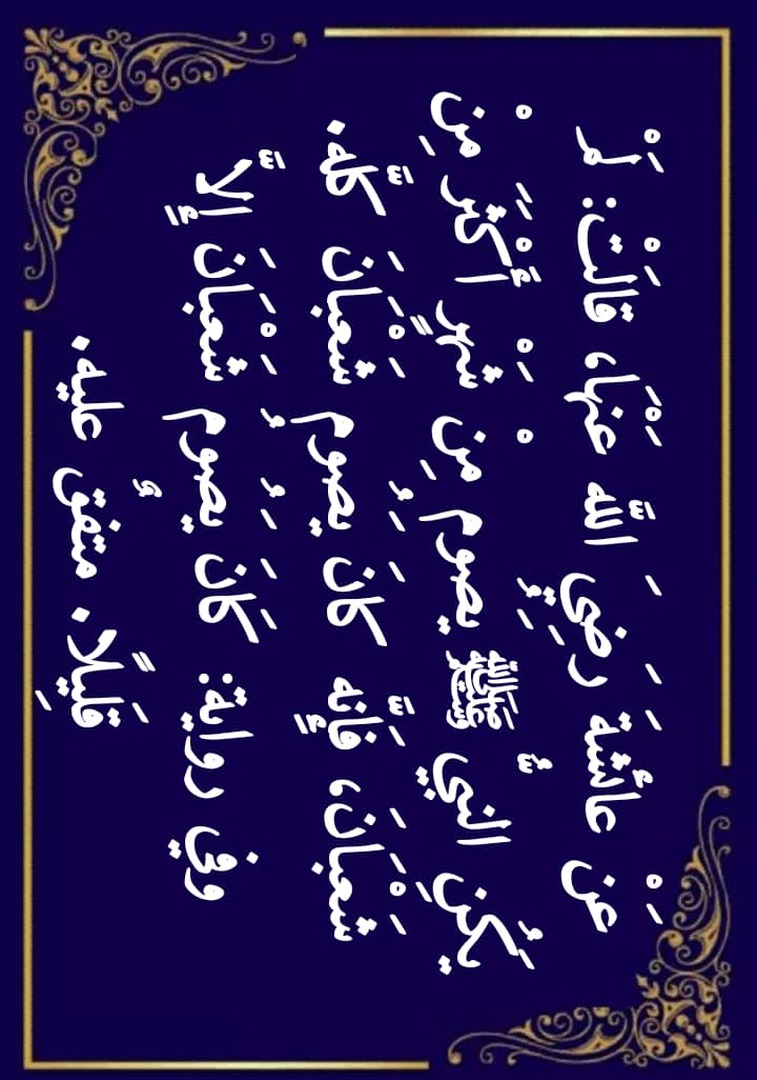 عَنْ عائشةَ رَضِيَ اللَّه عنهَا، قالَتْ: لَمْ
يَكُنِ النبيُّ ﷺ يصوم مِنْ شَهْرٍ أَكْثَرَ مِنْ
شَعْبَانَ، فَإِنَّه كانَ يَصُوم شَعْبَانَ كلَّه.
وفي رواية: كَانَ يَصُوم شَعْبَانَ إِلَّا
قَلِيلًا. متفقٌ عليه.